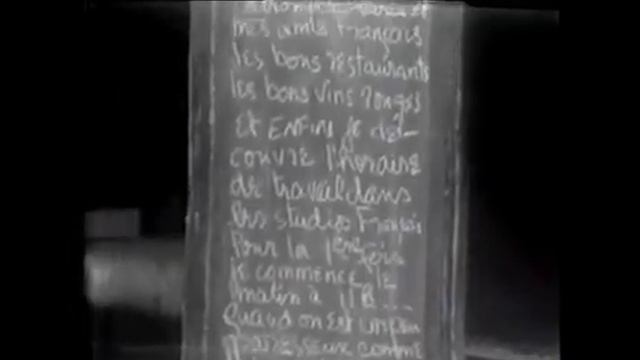 mes amis Français
les bons restaurants
les bons vins rouges
et ENFIN je dé-
couvre l'horaire
de travail dans
les studios Français
Pour la 1ère fois
je commence le
matin à 11 h
Quand on est un peu
paresseux comme